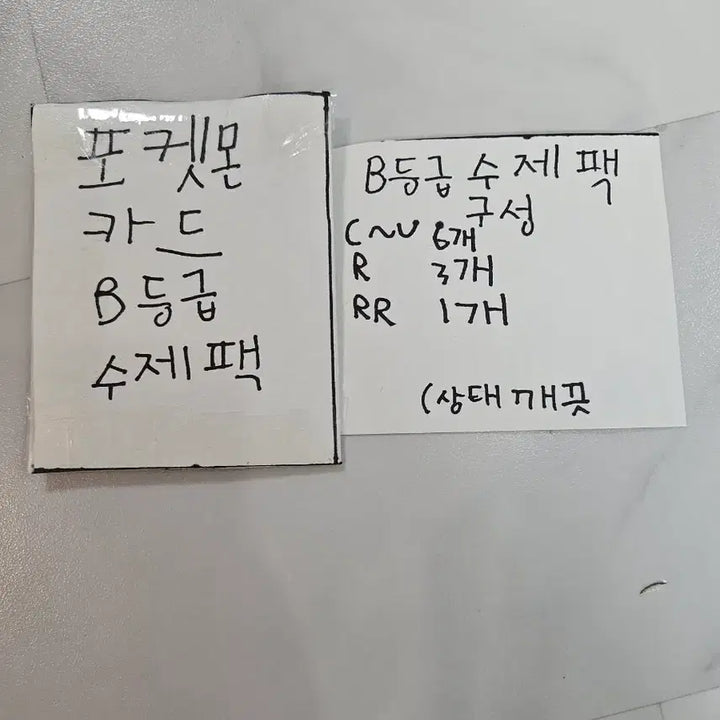 포켓몬
카드
B등급
수제팩
B등급 수제 팩
구성
C~U 6개
R 3개
RR 1개
(상태 깨끗